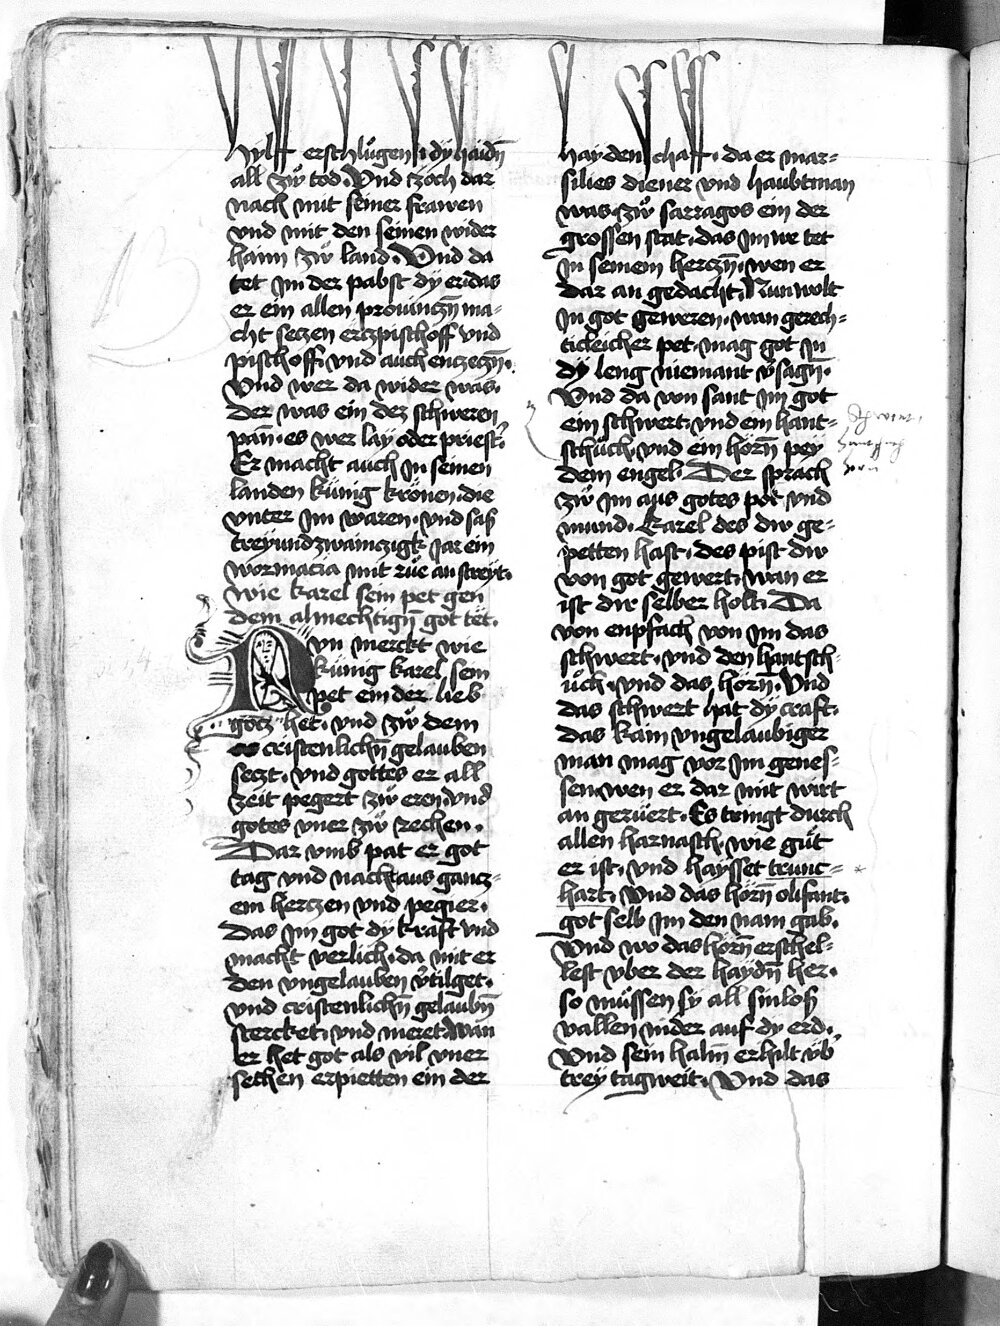 hylff erschlůgen dy haidn̄
all zů tod. Vnd zoch dar
nach mit seiner frawen
vnd mit den seinen wider
haim zů land. Vnd da
tet jm der pabst dy er das
er ein allen prouinczn̄ ma-
cht seczen erczpischoff vnd
pischoff. vnd auch enczeczn̄.
Vnd wer da wider was.
Der was ein dez schweren
pan. es wer lay oder priest̉.
Er macht auch jn seinen
landen künig krönen. die
vnter jm waren. vnd saß
treyundzwainczigk jar ein
wormacia mit rüe an streyt.
wie karel sein pet gen
dem almechtign̄ got tet.
Nvn merckt wie
künig karel sein
pet ein der lieb
gotz het. vnd zů dem
cristenlichn̄ gelauben
seczt. vnd gottes er all
zeit pegert zů eren. vnd
gotes vner zů rechen.
Dar vmb pat er got
tag vnd nacht aus gancz-
em herczen vnd pegier.
Das jm got dy kraft vnd
macht verlich. da mit er
den vngelauben v̉tilget.
vnd cristenlichn̄ gelaubn̄
stercket. vnd meret. Wan
er het got als vil vner
sechen erpietten ein der
haydenschafft. da er mar-
silies diener vnd haubtman
was. zů sarragos ein der
grossen stat. das jm we tet
jn seinem herczn̄. wen er
dar an gedacht. Nun wolt
jn got geweren. wan gerech-
ticleicher pet. mag got jn
dy leng niemant v̉sagn̄.
Vnd da von sant jm got
ein schwert. vnd ein hant-
schůch. vnd ein hörn̄ pey
dem engel. Der sprach
zů jm aus gotes pot vnd
mund. Karel des dw ge-
petten hast. des pist dw
von got gewert. wan er
ist dir selber holt. Da
von enpfach von jm das
schwert. vnd den hantsch-
ůch. vnd das hörn̄. Vnd
das schwert hat dy craft.
das kain vngelaubiger
man mag vor jm genes-
sen. wen er dar mit wirt
an gerüert. Es tringt durch
allen harnasch. wie gůt
er ist. vnd haysset trunc-
hart. Vnd das hörn̄ olifant.
got selb jm den nam gab.
Vnd wo das hörn̄ erschel-
lest vber der haydn̄ her.
so müssen sy all sinloß
vallen nider auf dy erd.
Vnd sein halm̄ erhilt vb̉
trey tagweit. Vnd das